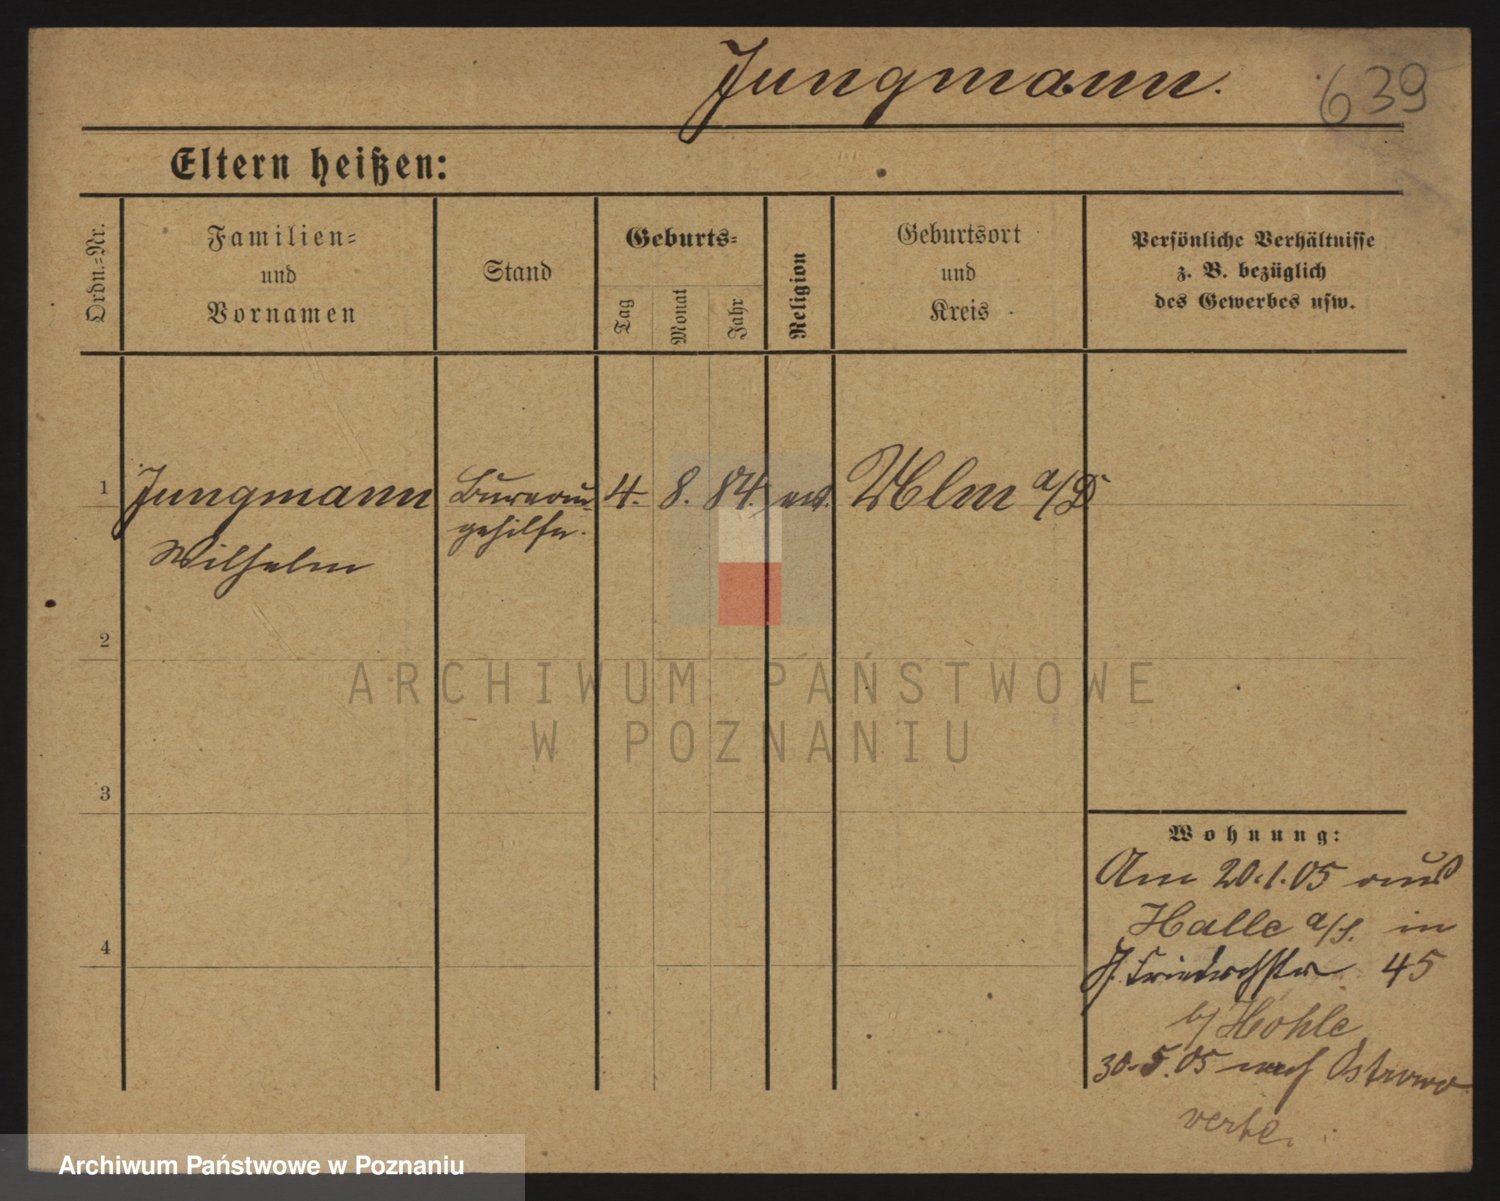 Jungmann.
639
Eltern heißen:
Ordn.=Nr.
Familien=
und
Vornamen
Stand
Geburts=
Tag
Monat
Jahr
Religion
Geburtsort
und
Kreis
Persönliche Verhältnisse
z. B. bezüglich
des Gewerbes usw.
1 Jungmann Bureau- 4. 8. 84. ev. Ulm a/D
Wilhelm gehilfe.
2
3
4
Wohnung:
Am 20.1.05 aus
Halle a/S. in
Friedrichstr 45
b/ Hohle
30.5.05 nach Ostrowo
verte.
ARCHIWUM PAŃSTWOWE
W POZNANIU
Archiwum Państwowe w Poznaniu